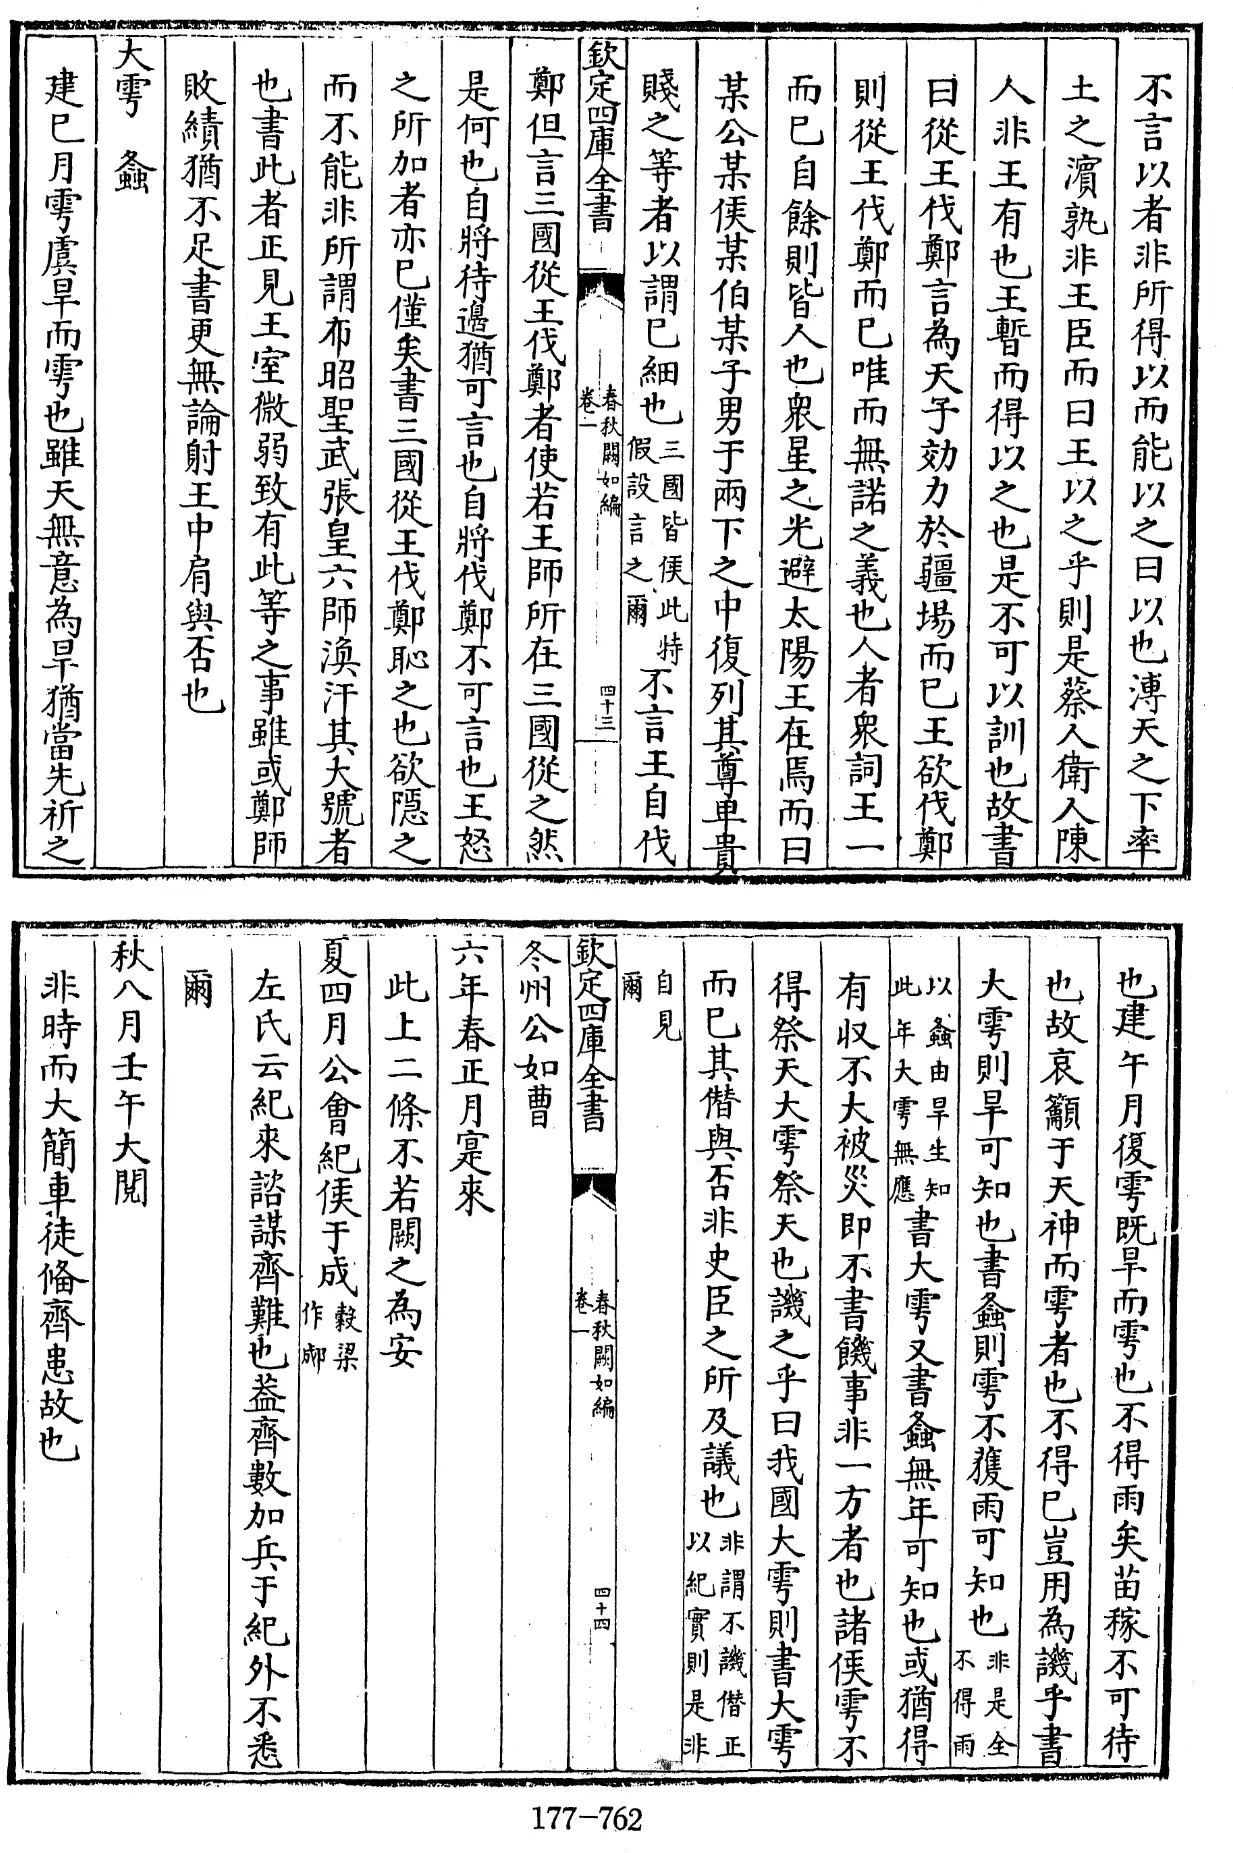 不言以者非所得以而能以之曰以也溥天之下率
土之濵孰非王臣而曰王以之乎則是蔡人衛人陳
人非王有也王暫而得以之也是不可以訓也故書
曰從王伐鄭言為天子効力於疆場而已王欲伐鄭
則從王伐鄭而已唯而無諾之義也人者衆詞王一
而已自餘則皆人也衆星之光避太陽王在焉而曰
某公某侯某伯某子男于兩下之中復列其尊卑貴
賤之等者以謂已細也三國皆侯此特假設言之爾不言王自伐
欽定四庫全書
春秋闕如編
卷一
四十三
鄭但言三國從王伐鄭者使若王師所在三國從之然
是何也自將待邊猶可言也自將伐鄭不可言也王怒
之所加者亦已僅矣書三國從王伐鄭恥之也欲隱之
而不能非所謂布昭聖武張皇六師渙汗其大號者
也書此者正見王室微弱致有此等之事雖或鄭師
敗績猶不足書更無論射王中肩與否也
大雩 螽
建巳月雩虞旱而雩也雖天無意為旱猶當先祈之
也建午月復雩既旱而雩也不得雨矣苗稼不可待
也故哀籲于天神而雩者也不得已豈用為譏乎書
大雩則旱可知也書螽則雩不獲雨可知也非是全不得雨
以螽由旱生知此年大雩無應書大雩又書螽無年可知也或猶得
有収不大被災即不書饑事非一方者也諸侯雩不
得祭天大雩祭天也譏之乎曰我國大雩則書大雩
而已其僣與否非史臣之所及議也非謂不譏僣正以紀實則是非
自見爾
欽定四庫全書
春秋闕如編
卷一
四十四
冬州公如曹
六年春正月寔來
此上二條不若闕之為安
夏四月公會紀侯于成穀梁作郕
左氏云紀來諮謀齊難也葢齊數加兵于紀外不悉
爾
秋八月壬午大閲
非時而大簡車徒偹齊患故也
177-762